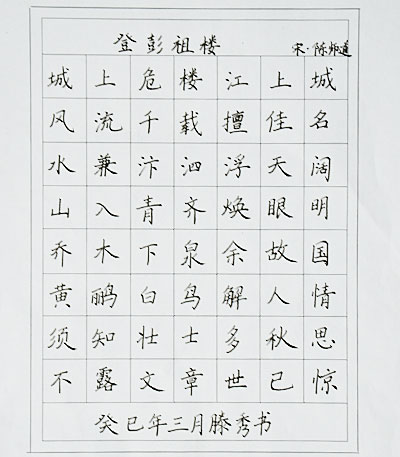 登彭祖楼
宋·陈师道
城上危楼江上城
风流千载擅佳名
水兼汴泗浮天阔
山入青齐焕眼明
乔木下泉余故国
黄鹂白鸟解人情
须知壮士多秋思
不露文章世已惊
癸巳年三月滕秀书